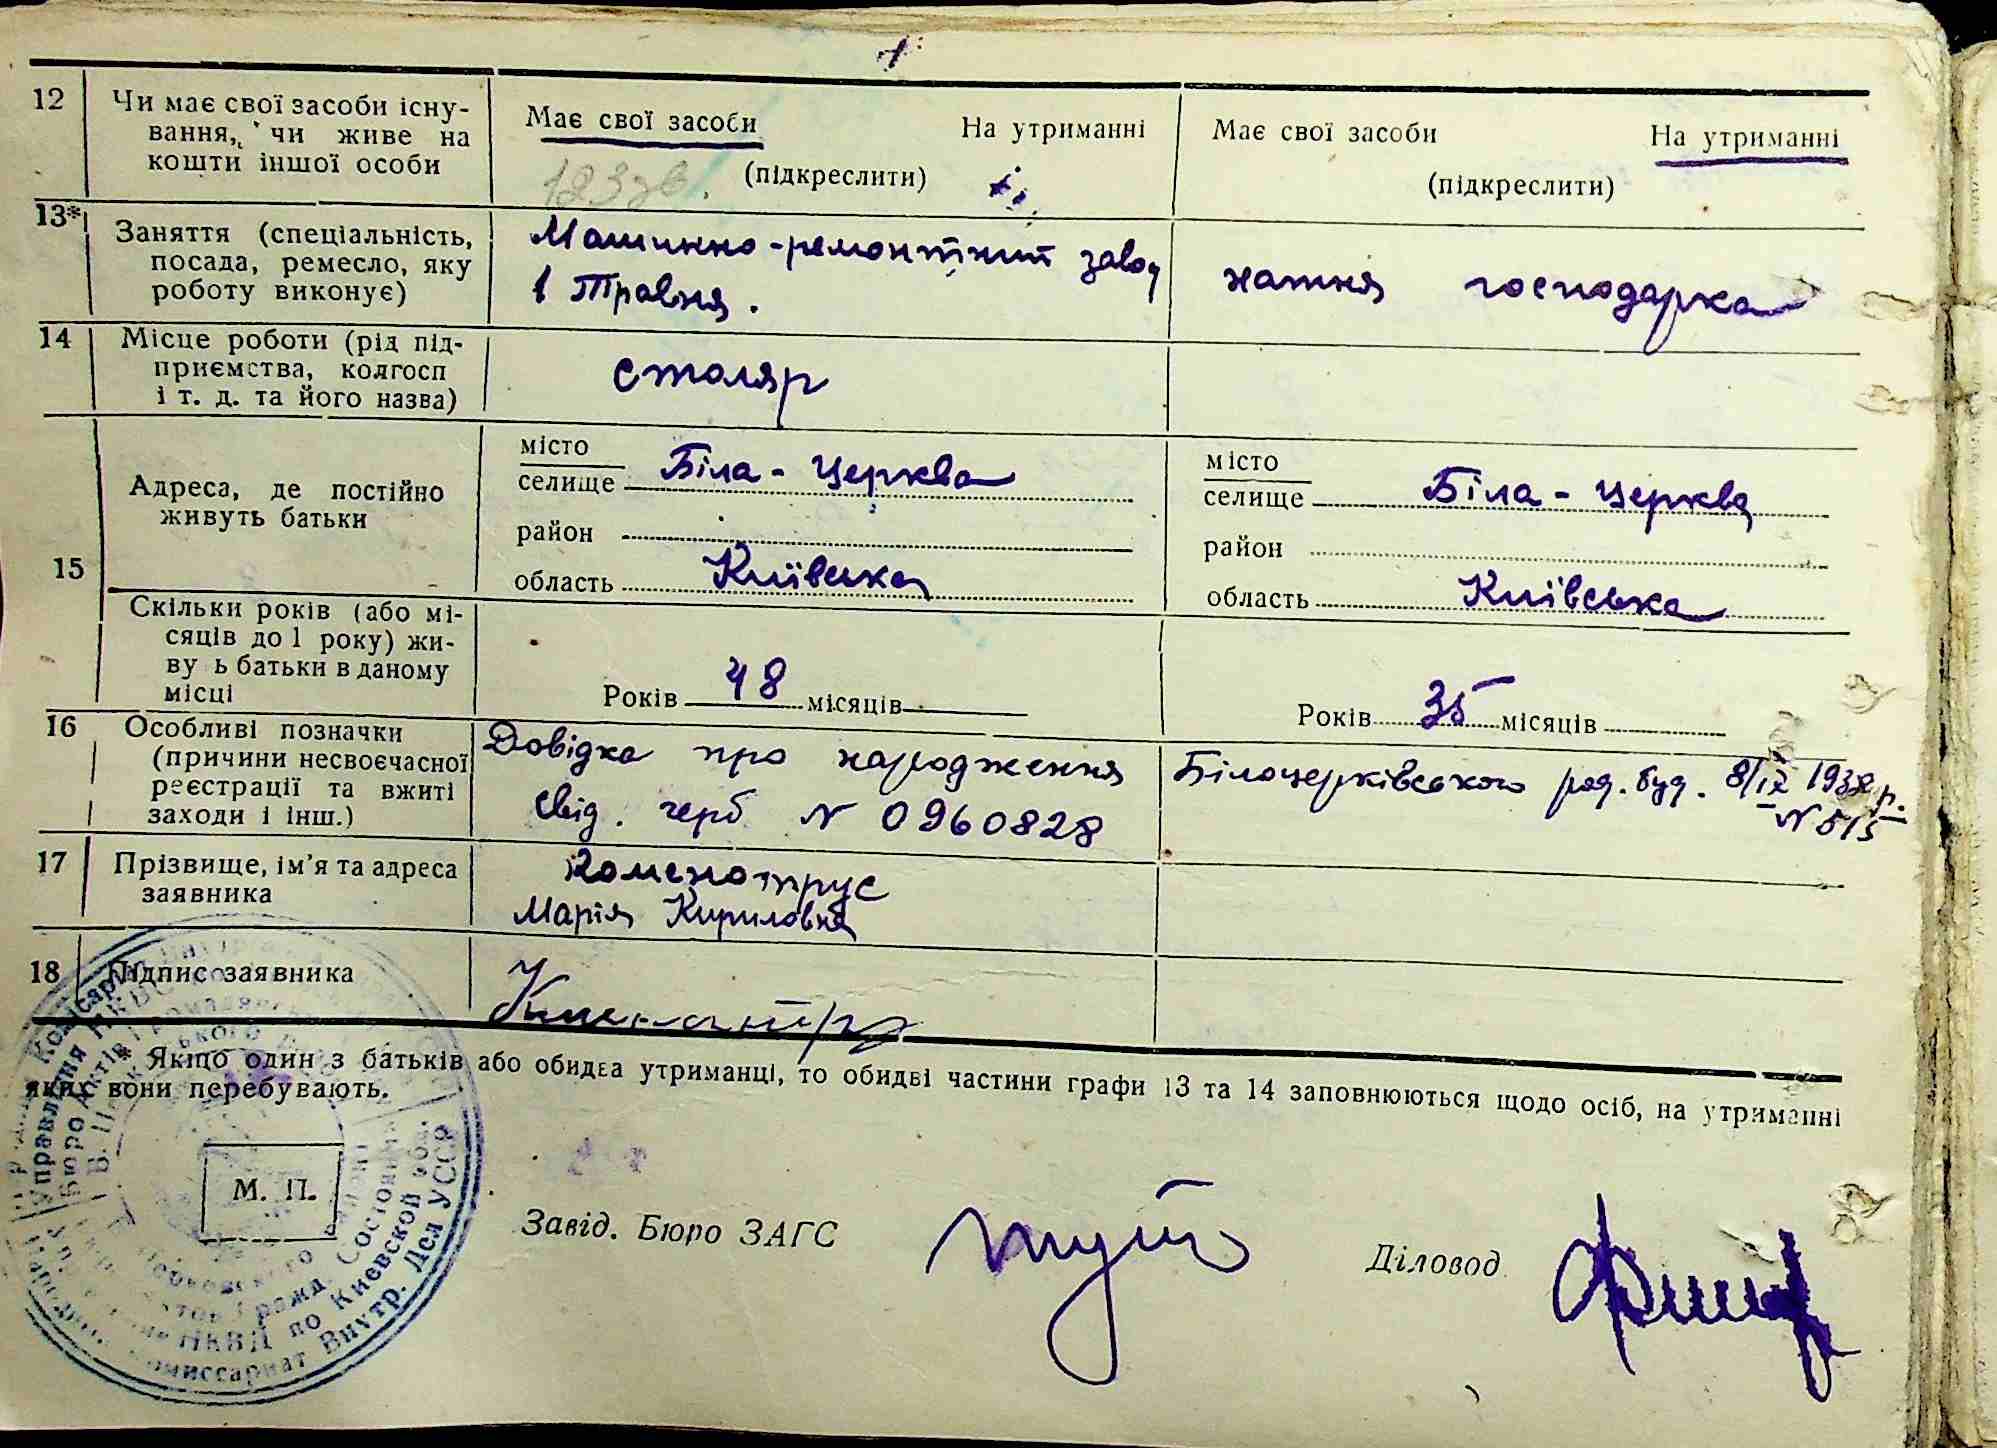 12
Чи має свої засоби існу-
вання, чи живе на
кошти іншої особи
Має свої засоби
На утриманні
(підкреслити)
Має свої засоби
На утриманні
(підкреслити)
13*
Заняття (спеціальність,
посада, ремесло, яку
роботу виконує)
Машинно-ремонтний завод
1 Травня.
хатня господарка
14
Місце роботи (рід під-
приємства, колгосп
і т. д. та його назва)
столяр
15
Адреса, де постійно
живуть батьки
місто
селище Біла-Церква
район
область Київська
місто
селище Біла-Церква
район
область Київська
Скільки років (або мі-
сяців до 1 року) жи-
ву ь батьки в даному
місці
Років 48 місяців
Років 35 місяців
16
Особливі позначки
(причини несвоєчасної
реєстрації та вжиті
заходи і інш.)
Довідка про народження
Свід. герб N 0960828
Білоцерківського род. буд. 8/IX 1938 р.
N 515
17
Прізвище, ім'я та адреса
заявника
Каменотрус
Марія Кириловна
18
Підпис заявника
* Якщо один з батьків або обидва утриманці, то обидві частини графи 13 та 14 заповнюються щодо осіб, на утриманні
яких вони перебувають.
М. П.
Завід. Бюро ЗАГС
Діловод